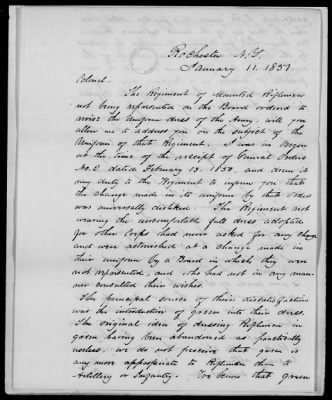 Rochester N.Y.
January 11. 1851
Colonel.
The Regiment of Mounted Riflemen
not being represented on the Board ordered to
revise the Uniform dress of the Army, will you
allow me to address you on the subject of the
Uniform of that Regiment. I was in Oregon
at the time of the receipt of General Orders
No. 2, dated February 13. 1850, and deem it
my duty to the Regiment to inform you that
the change made in its uniform by that order
was universally disliked. The Regiment not
wearing the uncomfortable full dress adopted
for other Corps had never asked for any change
and were astonished at a change made in
their uniform by a Board in which they were
not represented, and who had not in any man-
ner consulted their wishes.
The principal source of their dissatisfaction
was the introduction of green into their dress.
The original idea of dressing Riflemen in
green having been abandoned as practically
useless, we do not perceive that green is
any more appropriate to Riflemen than to
Artillery or Infantry. We know that green